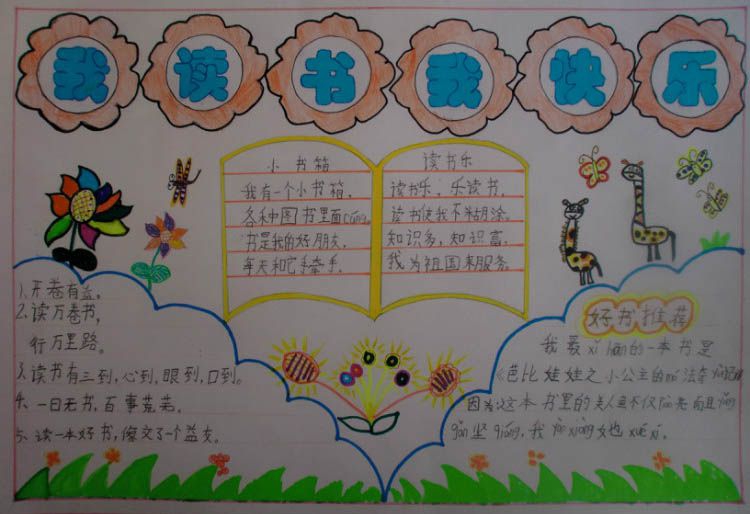 我读书我快乐
小书箱
我有一个小书箱，
各种图书里面cáng。
书是我的好朋友，
每天和它手牵手。
读书乐
读书乐，乐读书，
读书使我不糊涂。
知识多，知识富，
我为祖国来服务。
1、开卷有益。
2、读万卷书，
行万里路。
3、读书有三到，心到，眼到，口到。
4、一日无书，百事荒芜。
5、读一本好书，像交了一个益友。
好书推荐
我最xǐ huān的一本书是
《芭比娃娃之小公主的mó法学
因为这本书里的美人鱼不仅 亮而且
坚qiáng，我 xiàng她 xué xí。